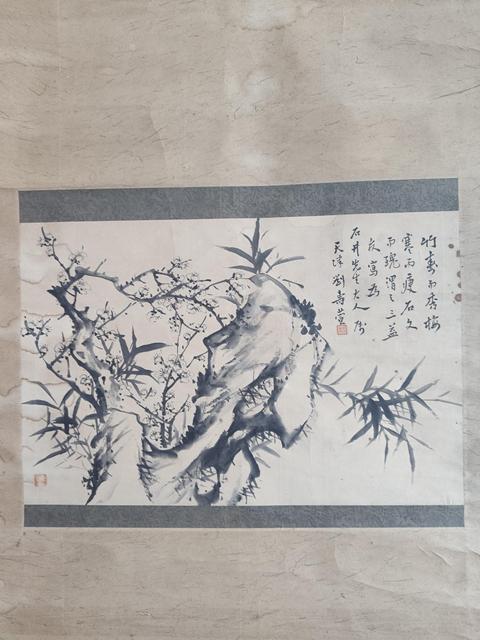 竹壽而秀梅
寒而瘦石文
而醜謂之三益
友寫為
石井先生大人属
天津劉